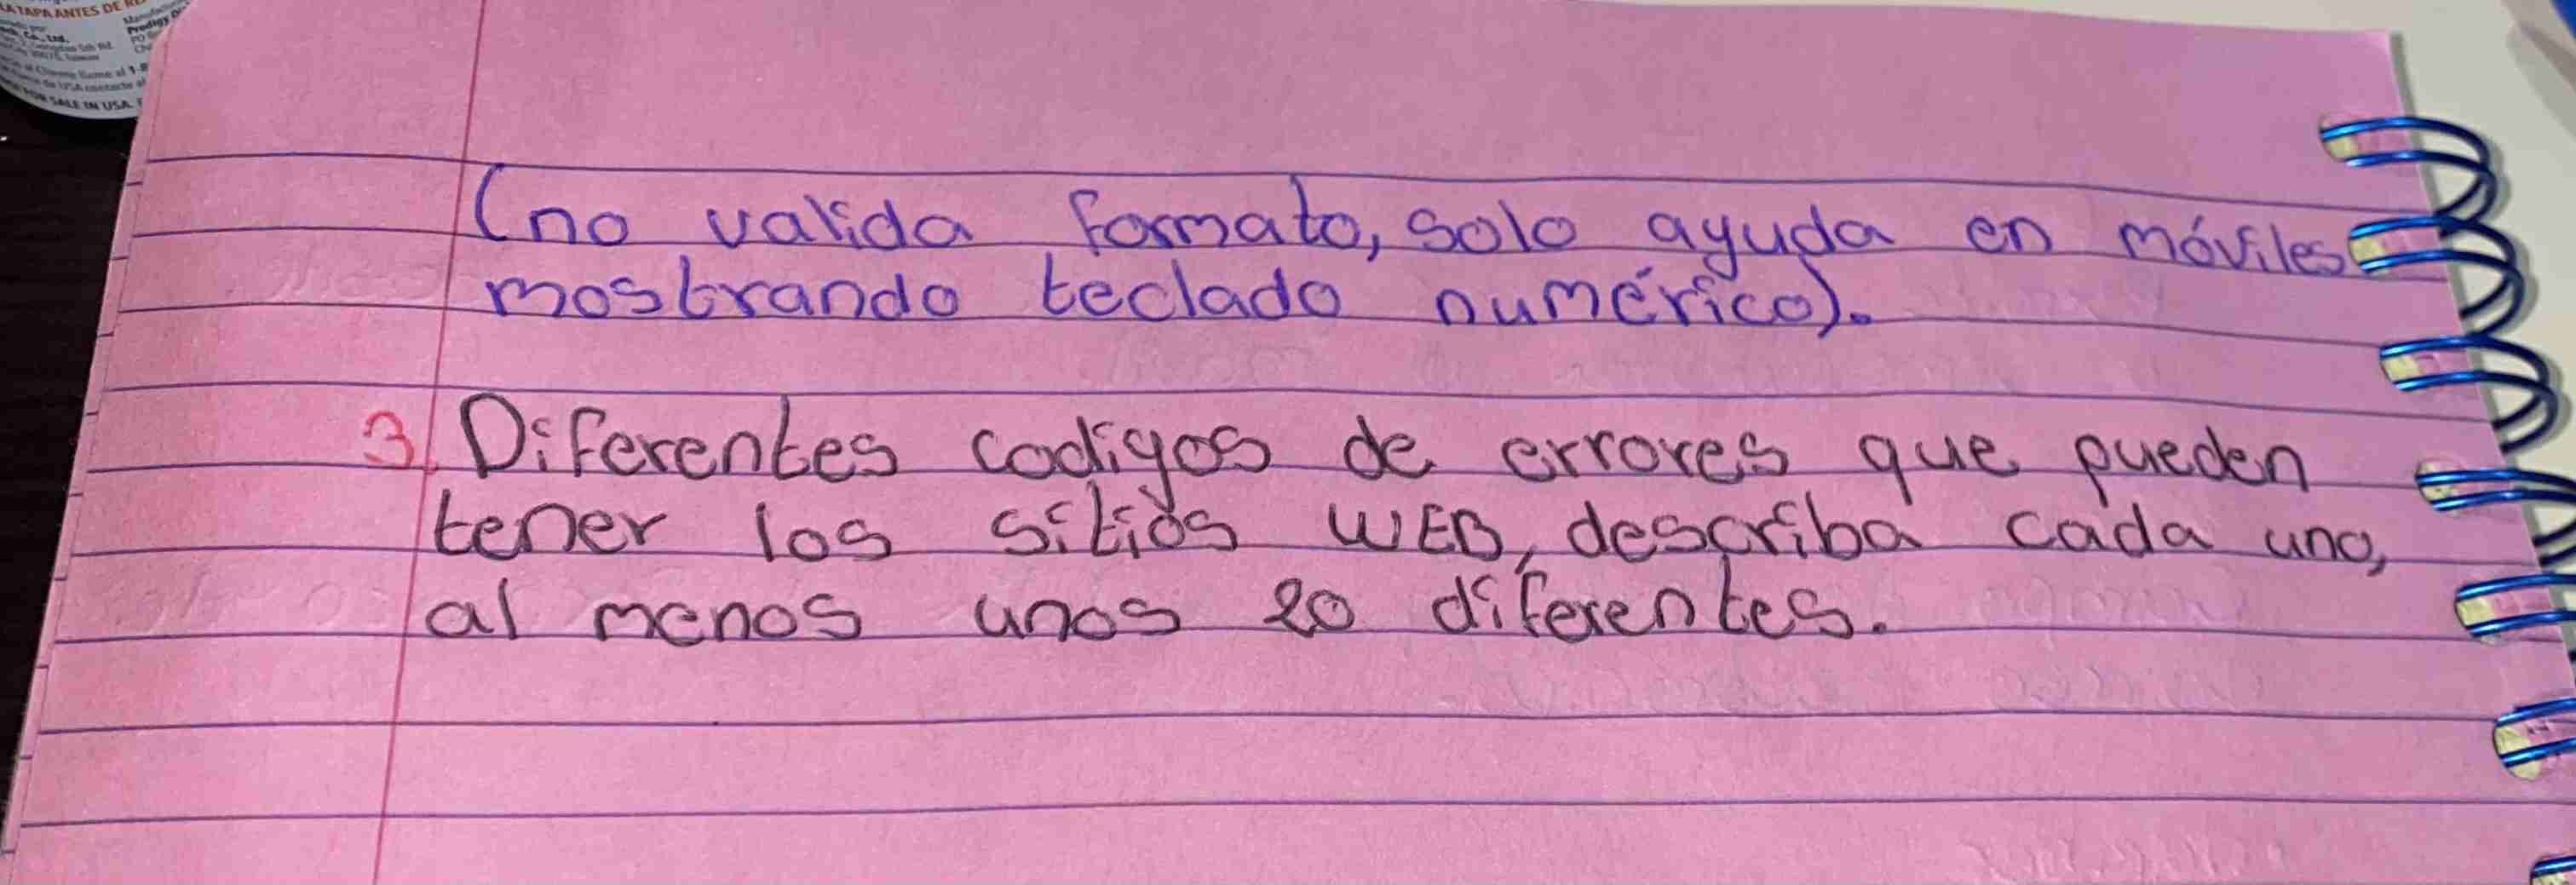 LA TAPA ANTES DE
Co., Ltd.
FOR SALE IN USA.
(no valida formato, solo ayuda en móviles
mostrando teclado numérico).
3. Diferentes codigos de errores que pueden
tener los sitios WEB, describa cada uno,
al menos unos 20 diferentes.